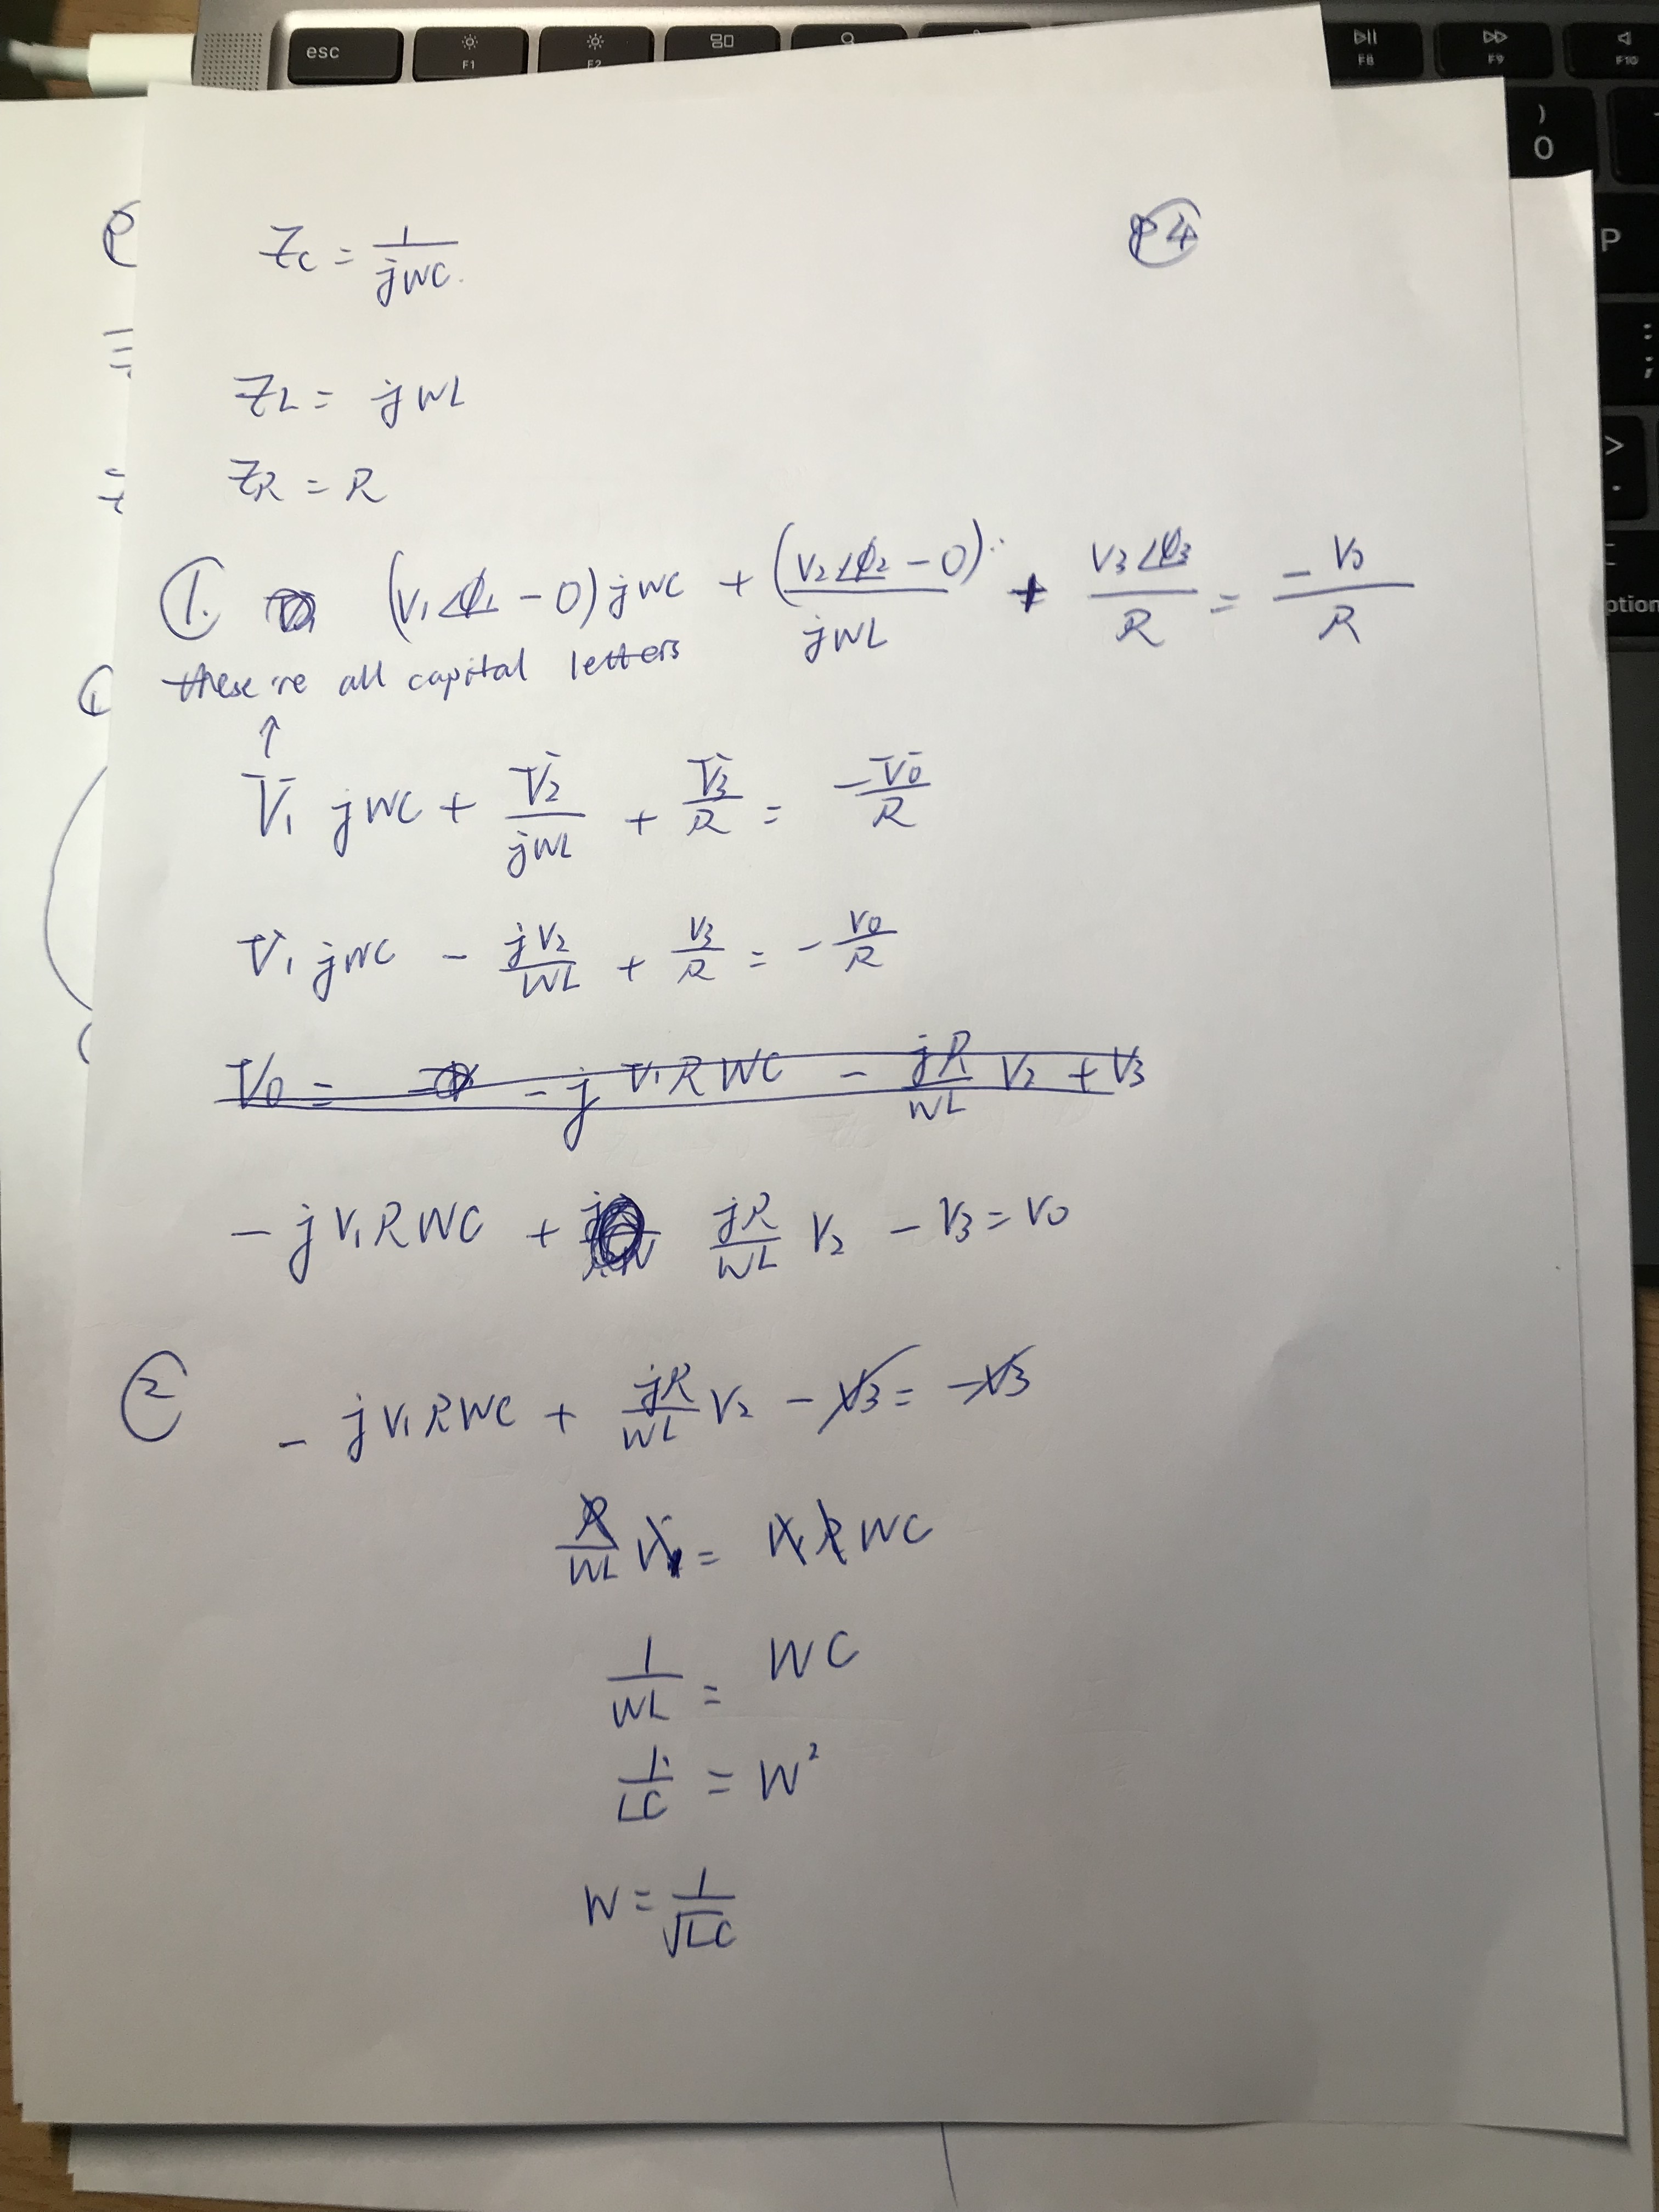 esc F1 F2 F8 F9 F10
) 0
P
: ;
> .
ption
P4
Zc = 1/jWC.
ZL = jWL
ZR = R
①. (V1∠φ1 - 0) jWC + (V2∠φ2 - 0)/jWL + V3∠φ3/R = -V0/R
these're all capital letters
↑
V1 jWC + V2/jWL + V3/R = -V0/R
V1 jWC - jV2/WL + V3/R = -V0/R
V0 = - j V1 R WC - jR/WL V2 + V3
- j V1 R WC + jR/WL V2 - V3 = V0
② - j V1 R WC + jR/WL V2 - V3 = -V3
R/WL V1 = V1 R WC
1/WL = WC
1/LC = W²
W = 1/√LC